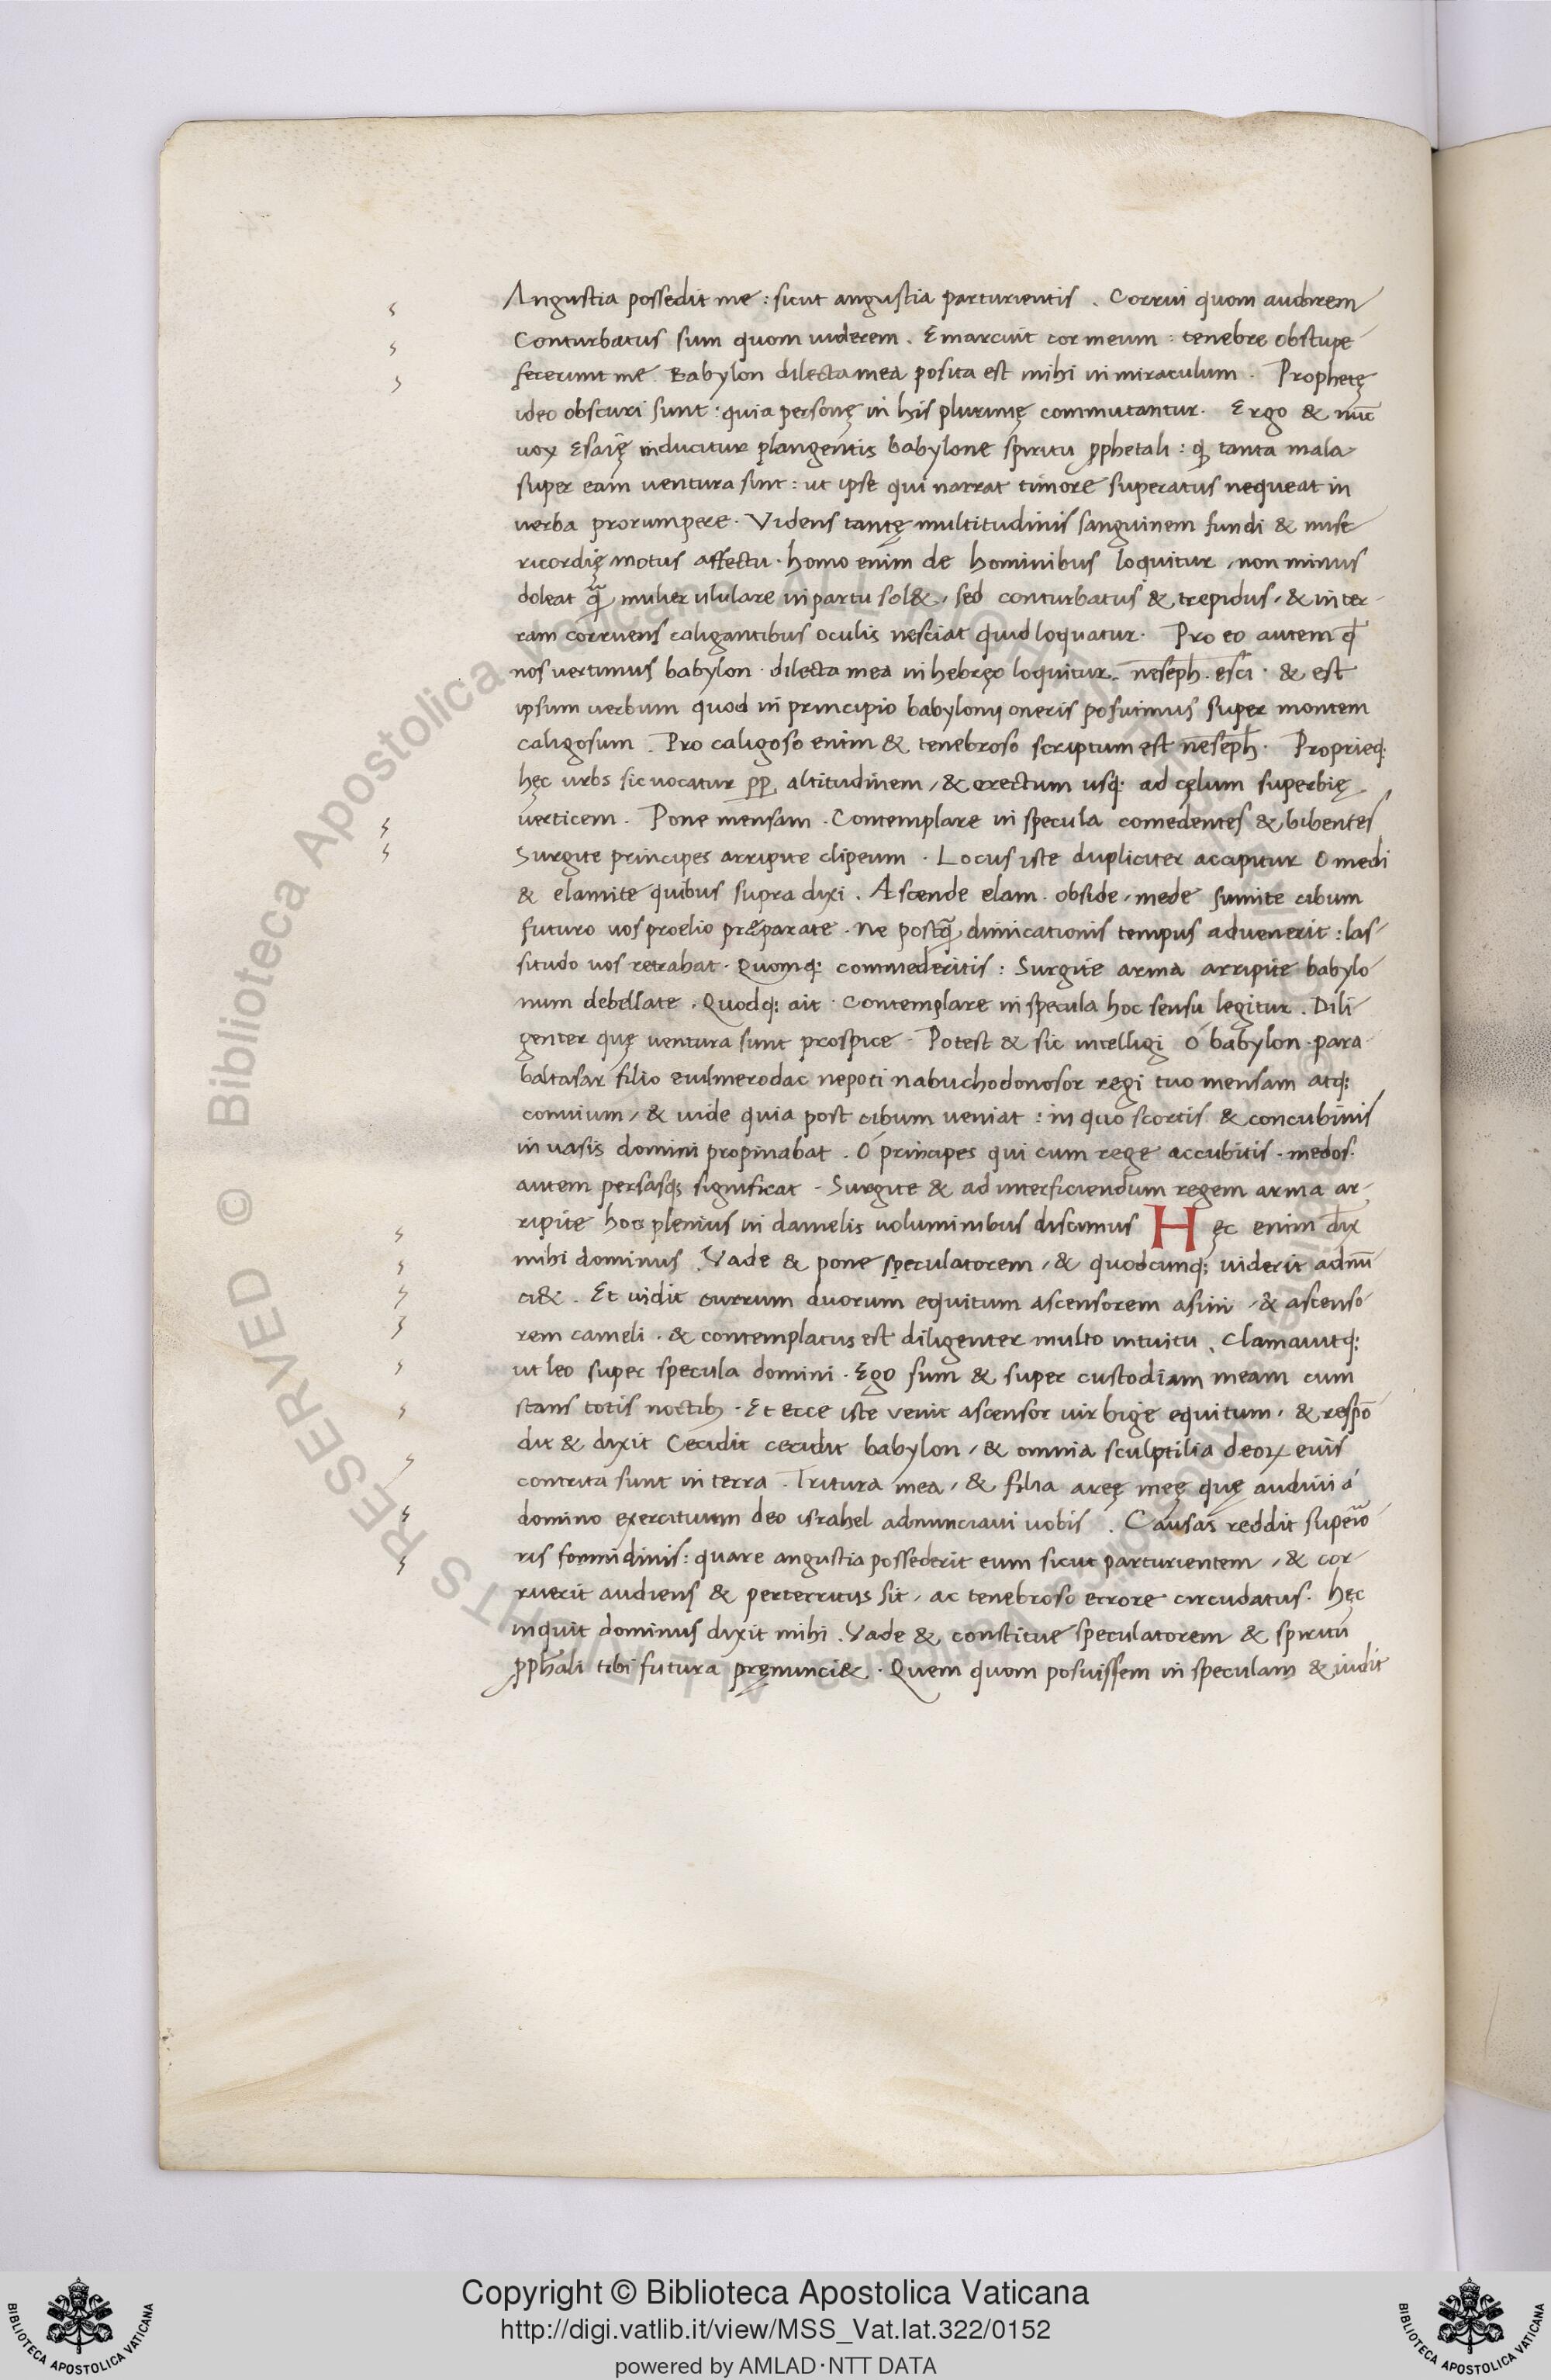 Angustia possedit me : sicut angustia parturientis . Corrui quom audirem
Conturbatus sum quom uiderem . Emarcuit cor meum : tenebre obstupe
fecerunt me Babylon dilecta mea posita est mihi in miraculum . Prophetę
ideo obscuri sunt : quia personę in his plurimę commutantur . Ergo & nūc
uox Esaię inducitur plangentis babylone spiritu ꝓphetali : ꝙ tanta mala
super eam uentura sint : ut ipse qui narrat timore superatus nequeat in
uerba prorumpere . Videns tantę multitudinis sanguinem fundi & mise
ricordię motus affectu . homo enim de hominibus loquitur , non minus
doleat ꝙ̃ mulier ululare in partu sol& , sed conturbatus & trepidus , & in ter-
ram corruens caligantibus oculis nesciat quid loquatur . Pro eo autem qđ
nos uertimus babylon . dilecta mea in hebręo loquitur . neseph . esci . & est
ipsum uerbum quod in principio babylonij oneris posuimus super montem
caligosum . Pro caligoso enim & tenebroso scriptum est neseph . Proprieq:
hęc urbs sic uocatur ꝓp altitudinem , & erectum usq: ad cęlum superbię
uerticem . Pone mensam . Contemplare in specula comedentes & bibentes
Surgite principes arripite clipeum . Locus iste dupliciter accipitur O medi
& elamite quibus supra dixi . Ascende elam . obside , mede sumite cibum
futuro uos proelio pręparate . Ne postꝙ̃ dimicationis tempus aduenerit : las-
situdo uos retrahat . Quomq: commederitis : Surgite arma arripite babylo
nium debellate . Quodq: ait . Contemplare in specula hoc sensu legitur . Dili
genter quę uentura sunt prospice . Potest & sic intelligi o babylon . para
baltasar filio euilmerodac nepoti nabuchodonosor regi tuo mensam atq:
conuiuium , & uide quia post cibum ueniat : in quo scortis & concubinis
in uasis domini propinabat . O principes qui cum rege accubitis . medos .
autem persasq; significat . Surgite & ad interficiendum regem arma ar-
ripite hoc plenius in danielis uoluminibus discimus Hęc enim dix
mihi dominus . Vade & pone speculatorem , & quodcunq; uiderit adnū
ci& . Et uidit currum duorum equitum ascensorem asini , & ascenso
rem cameli . & contemplatus est diligenter multo intuitu . Clamauitq:
ut leo super specula domini . Ego sum & super custodiam meam cum
stans totis noctibꝫ . Et ecce iste uenit ascensor uir bige equitum , & respō
dit & dixit Cecidit cecidit babylon , & omnia sculptilia deoꝝ euis
contrita sunt in terra . Tritura mea , & filia areę meę quę audiui á
domino exercituum deo israhel adnunciaui uobis . Causas reddit superio
ris formidinis : quare angustia possederit eum sicut parturientem , & cor-
ruerit audiens & perterritus sit , ac tenebroso errore circudatus . hęc
inquit dominus dixit mihi . Vade & constitue speculatorem & spiritu
ꝓph̄ali tibi futura pręnunci& . Quem quom posuissem in speculam & uidit
© Biblioteca Apostolica Vaticana ALL RIGHTS RESERVED
Copyright © Biblioteca Apostolica Vaticana
http://digi.vatlib.it/view/MSS_Vat.lat.322/0152
powered by AMLAD·NTT DATA
BIBLIOTECA APOSTOLICA VATICANA
BIBLIOTECA APOSTOLICA VATICANA